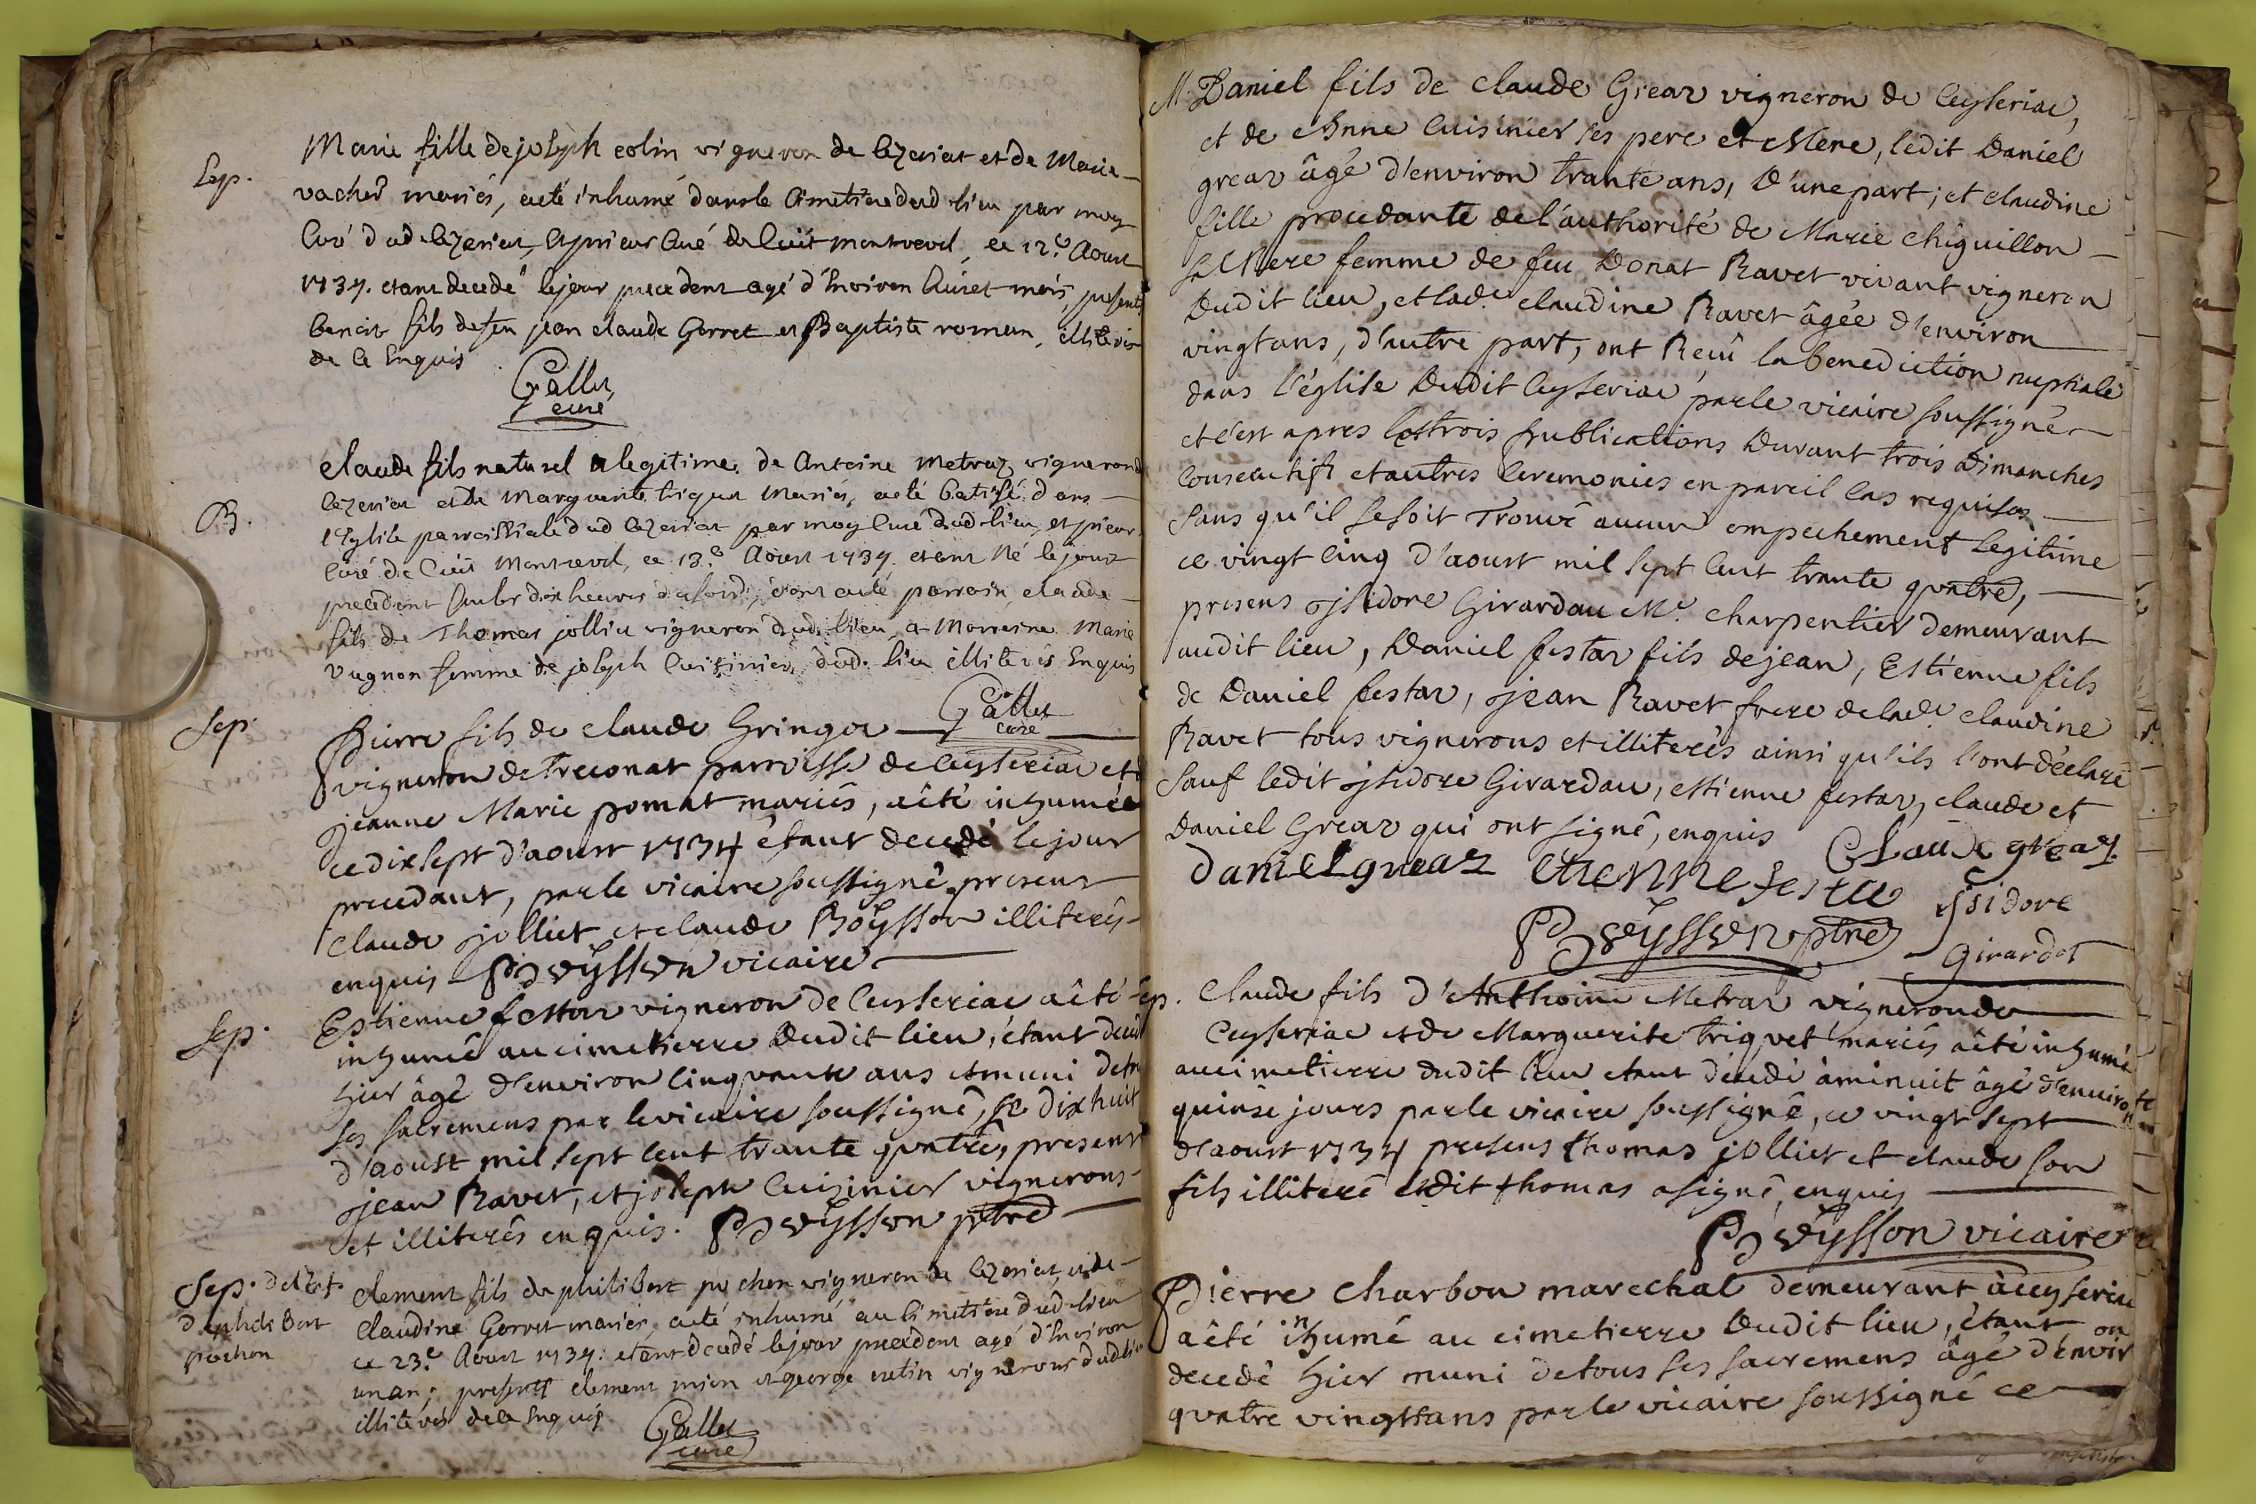 Sep.
Marie fille de joseph colin vigneron de cezeriat et de Marie
vacher mariés, aeté inhumé dans le Cimetiere dud. lieu par moy
Curé dud. cezeriat, et prieur Curé de Cuët montrevel, ce 12.e Aoust
1734. etant decedé le jour precedent agé d'Environ huict mois, presents
benoit fils de feu jean claude Gorret et Baptiste roman, illiterés
de ce Enquis
Gallet
curé
B.
claude fils naturel et legitime de Antoine Metraz vigneron de
cezeriat et de Marguerite triquet Mariés, aeté batisé dans
l'Eglise parroissiale dud cezeriat par moy Curé dud. lieu, et prieur
Curé de Cuët Montrevel, ce 13.e Aoust 1734. etant Né le jour
precedent sur les dix heures du soir, dont aeté parrain, claude
fils de Thomas jolliet vigneron dud. lieu, et Marreine Marie
vugnon femme de joseph Cuisinier, dud. lieu illiterés Enquis
Gallet
curé
Sep.
Pierre fils de claude Gringoz
vigneron de treconat parroisse de Ceyseriac et d
jeanne Marie pomat mariés, aêté inhumée
ce dix sept d'aoust 1734 êtant decedé le jour
precedant, par le vicaire soussigné presens
claude jolliet et claude Boÿsson illiterés
enquis P Beÿsson vicaire
Sep.
Estienne festaz vigneron de Ceyseriac aêté
inhumé au cimetierre dudit lieu, étant decedé
hier âgé d'environ cinquante ans et muni de tous
ses sacremens par le vicaire soussigné, ce dix huit
d'aoust mil sept cent trante quatre, presens
jean Ravet, et joseph Cuisinier vignerons
et illiterés enquis. P Beÿsson ptre
Sep. de Clt
d philibert
pochon
clement fils de philibert pochon vigneron de cezeriat et de
claudine Gorret mariés, aeté inhumé au Cimetiere dud. lieu
ce 23.e Aoust 1734. etant decedé le jour precedent agé d'Environ
un an; presents clement mion et george cutin vignerons dud. lieu
illiterés de ce Enquis
Gallet
curé
M. Daniel fils de claude Greaz vigneron de Ceyseriac,
et de Anne Cuisinier ses pere et Mere, ledit Daniel
greaz âgé d'environ trante ans, D'une part; et claudine
fille procedante de l'authorité de Marie chiquillon
sa Mere femme de feu Donat Ravet vivant vigneron
Dudit lieu, et lad.e claudine Ravet âgée d'environ
vingt ans, d'autre part, ont Reçû la benediction nuptiale
dans l'église Dudit Ceyseriac par le vicaire soussigné
et c'est apres les trois publications Durant trois Dimanches
Consecutifs et autres Ceremonies en pareil cas requises
sans qu'il se soit Trouvé aucun empechement Legitime
ce vingt cinq d'aoust mil sept cent trante quatre,
presens jsidore Girardau M.e charpentier demeurant
audit lieu, Daniel festaz fils de jean, Estienne fils
de Daniel festaz, jean Ravet frere de lad.e claudine
Ravet tous vignerons et illiterés ainsi qu'ils l'ont déclaré
Sauf ledit jsidore Girardau, estienne festaz, claude et
Daniel Greaz qui ont signé, enquis
Claude greaz
daniel greaz etienne festa
isidore
Girardot
P Beysson ptre
Sep. Claude fils d'Anthoine Metraz vigneron de
Ceyseriac et de Marguerite triquet mariés aêté inhumé
au cimetierre dudit lieu etant décédé à minuit âgé d'environ
quinse jours par le vicaire soussigné, ce vingt sept
d'aoust 1734 presens thomas jolliet et claude son
fils illiteré ledit thomas a signé, enquis
P Beÿsson vicaire
Pierre charbon marechal demeurant à ceyseria
aêté inhumé au cimetierre Dudit lieu, êtant
decedé hier muni de tous ses sacremens âgé d'environ
quatre vingt ans par le vicaire soussigné ce